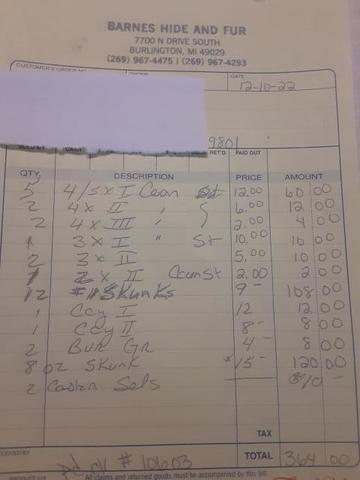 BARNES HIDE AND FUR
7700 N DRIVE SOUTH
BURLINGTON, MI 49029
(269) 967-4475 | (269) 967-4293
CUSTOMER'S ORDER NO.
DATE
12-10-22
9801
RET'D. PAID OUT
QTY. DESCRIPTION PRICE AMOUNT
5 4/5X I Coon St 12.00 60 00
2 4X II " 6.00 12 00
2 4X III " 2.00 4 00
1 3X I " St 10.00 10 00
2 3X II 5.00 10 00
1 2X II Coon St 2.00 2 00
12 #1 Skunks 9- 108 00
1 Coy I 12 12 00
1 Coy II 8- 8 00
2 Bur Gr 4- 8 00
8 oz Skunk $15- 120 00
2 Castor Sets 10 -
TAX
RECEIVED BY
TOTAL 364 00
Pd ck # 10603
All claims and returned goods must be accompanied by this bill